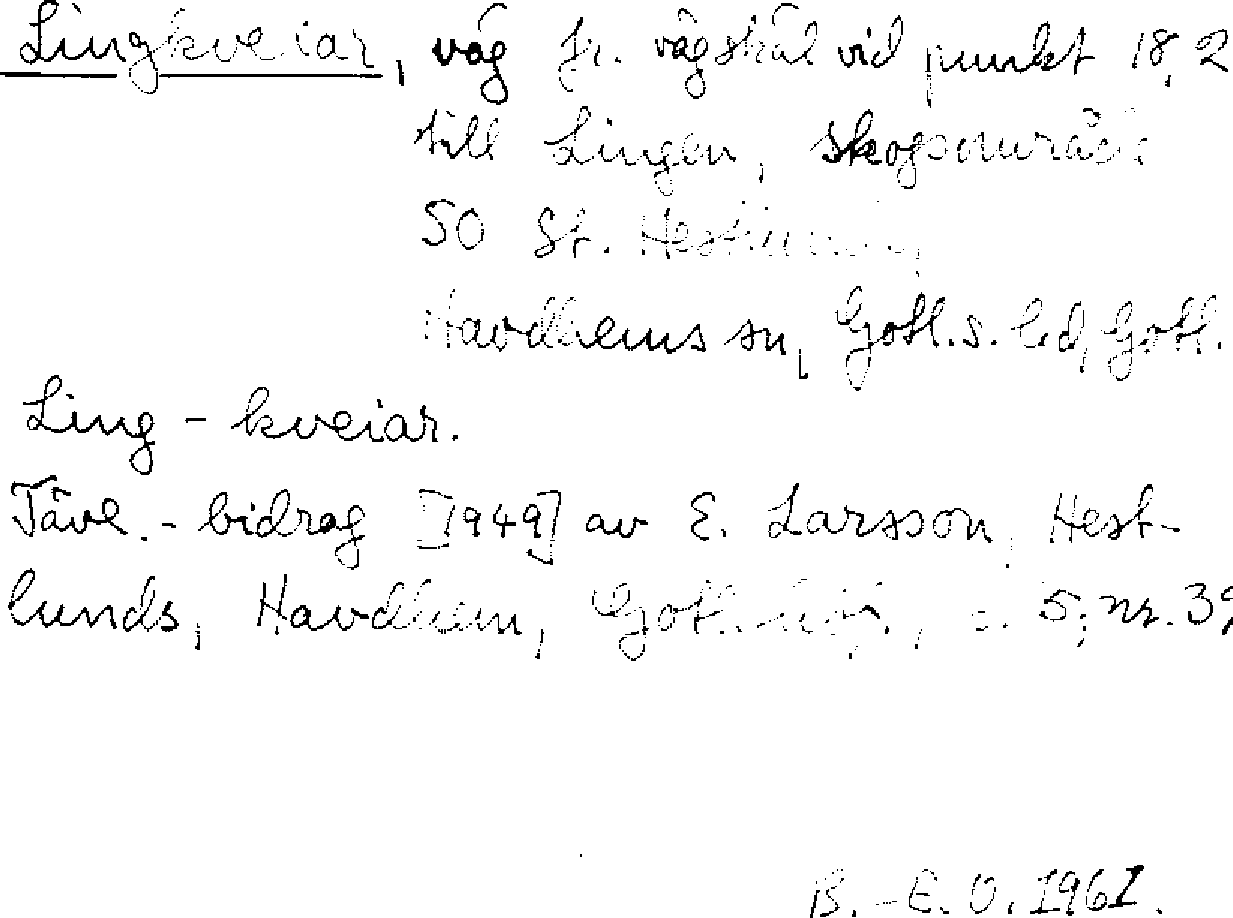 Lingkveiar, väg fr. vägskäl vid punkt 18,2
till Lingen, skogsområde
SO St.
Havdhems sn, Gotl. s. hd, Gotl.
Ling - kveiar.
Tävl. - bidrag [1949] av E. Larsson, Hest-
lunds, Havdhem, s. 5, nr. 39
B. - E. O. 1961.